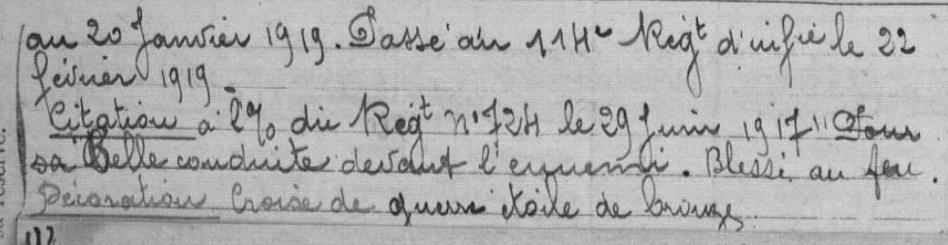 au 20 Janvier 1919. Passé au 114e Régt d'infie le 22
février 1919.
Citation à l'O/o du Régt n° 724 le 29 Juin 1917 " Pour
sa Belle conduite devant l'ennemi. Blessé au feu.
Décoration Croix de guerre étoile de bronze.